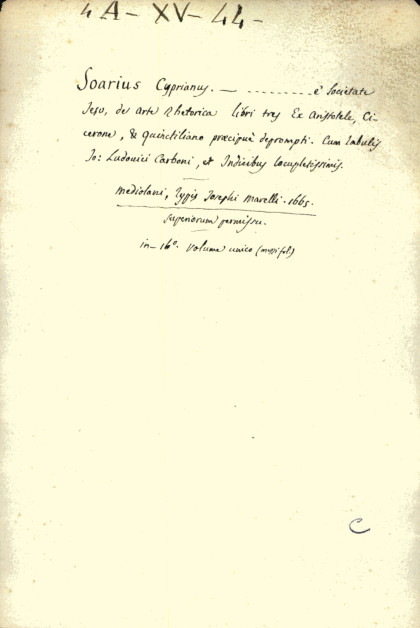 4A - XV - 44 -
Soarius Cyprianus. — ......... è Societate
Jesu, de Arte Rhetorica libri tres Ex Aristotele, Ci-
cerone, & Quinctiliano præcipuè deprompti. Cum Tabulis
Jo: Ludovici Carboni, et Indicibus locupletissimis.
Mediolani, Typis Josephi Marelli. 1665.
Superiorum permissu.
in-16º. Volume unico
C